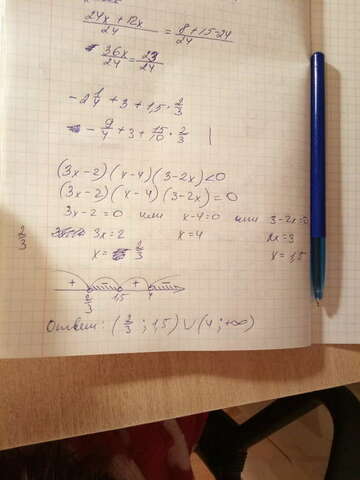 (24x + 12x)/24 = (8 + 15 - 24)/24
36x/24 = 23/24
- 2 1/4 + 3 + 1,5 · 2/3
- 9/4 + 3 + 15/10 · 2/3
(3x-2)(x-4)(3-2x)<0
(3x-2)(x-4)(3-2x)=0
3x-2=0 или x-4=0 или 3-2x=0
2/3 3x=2 x=4
x= 2/3 x=1,5
+ + 
2/3 1,5 4
Ответ: (2/3 ; 1,5) ∪ (4 ; +∞)